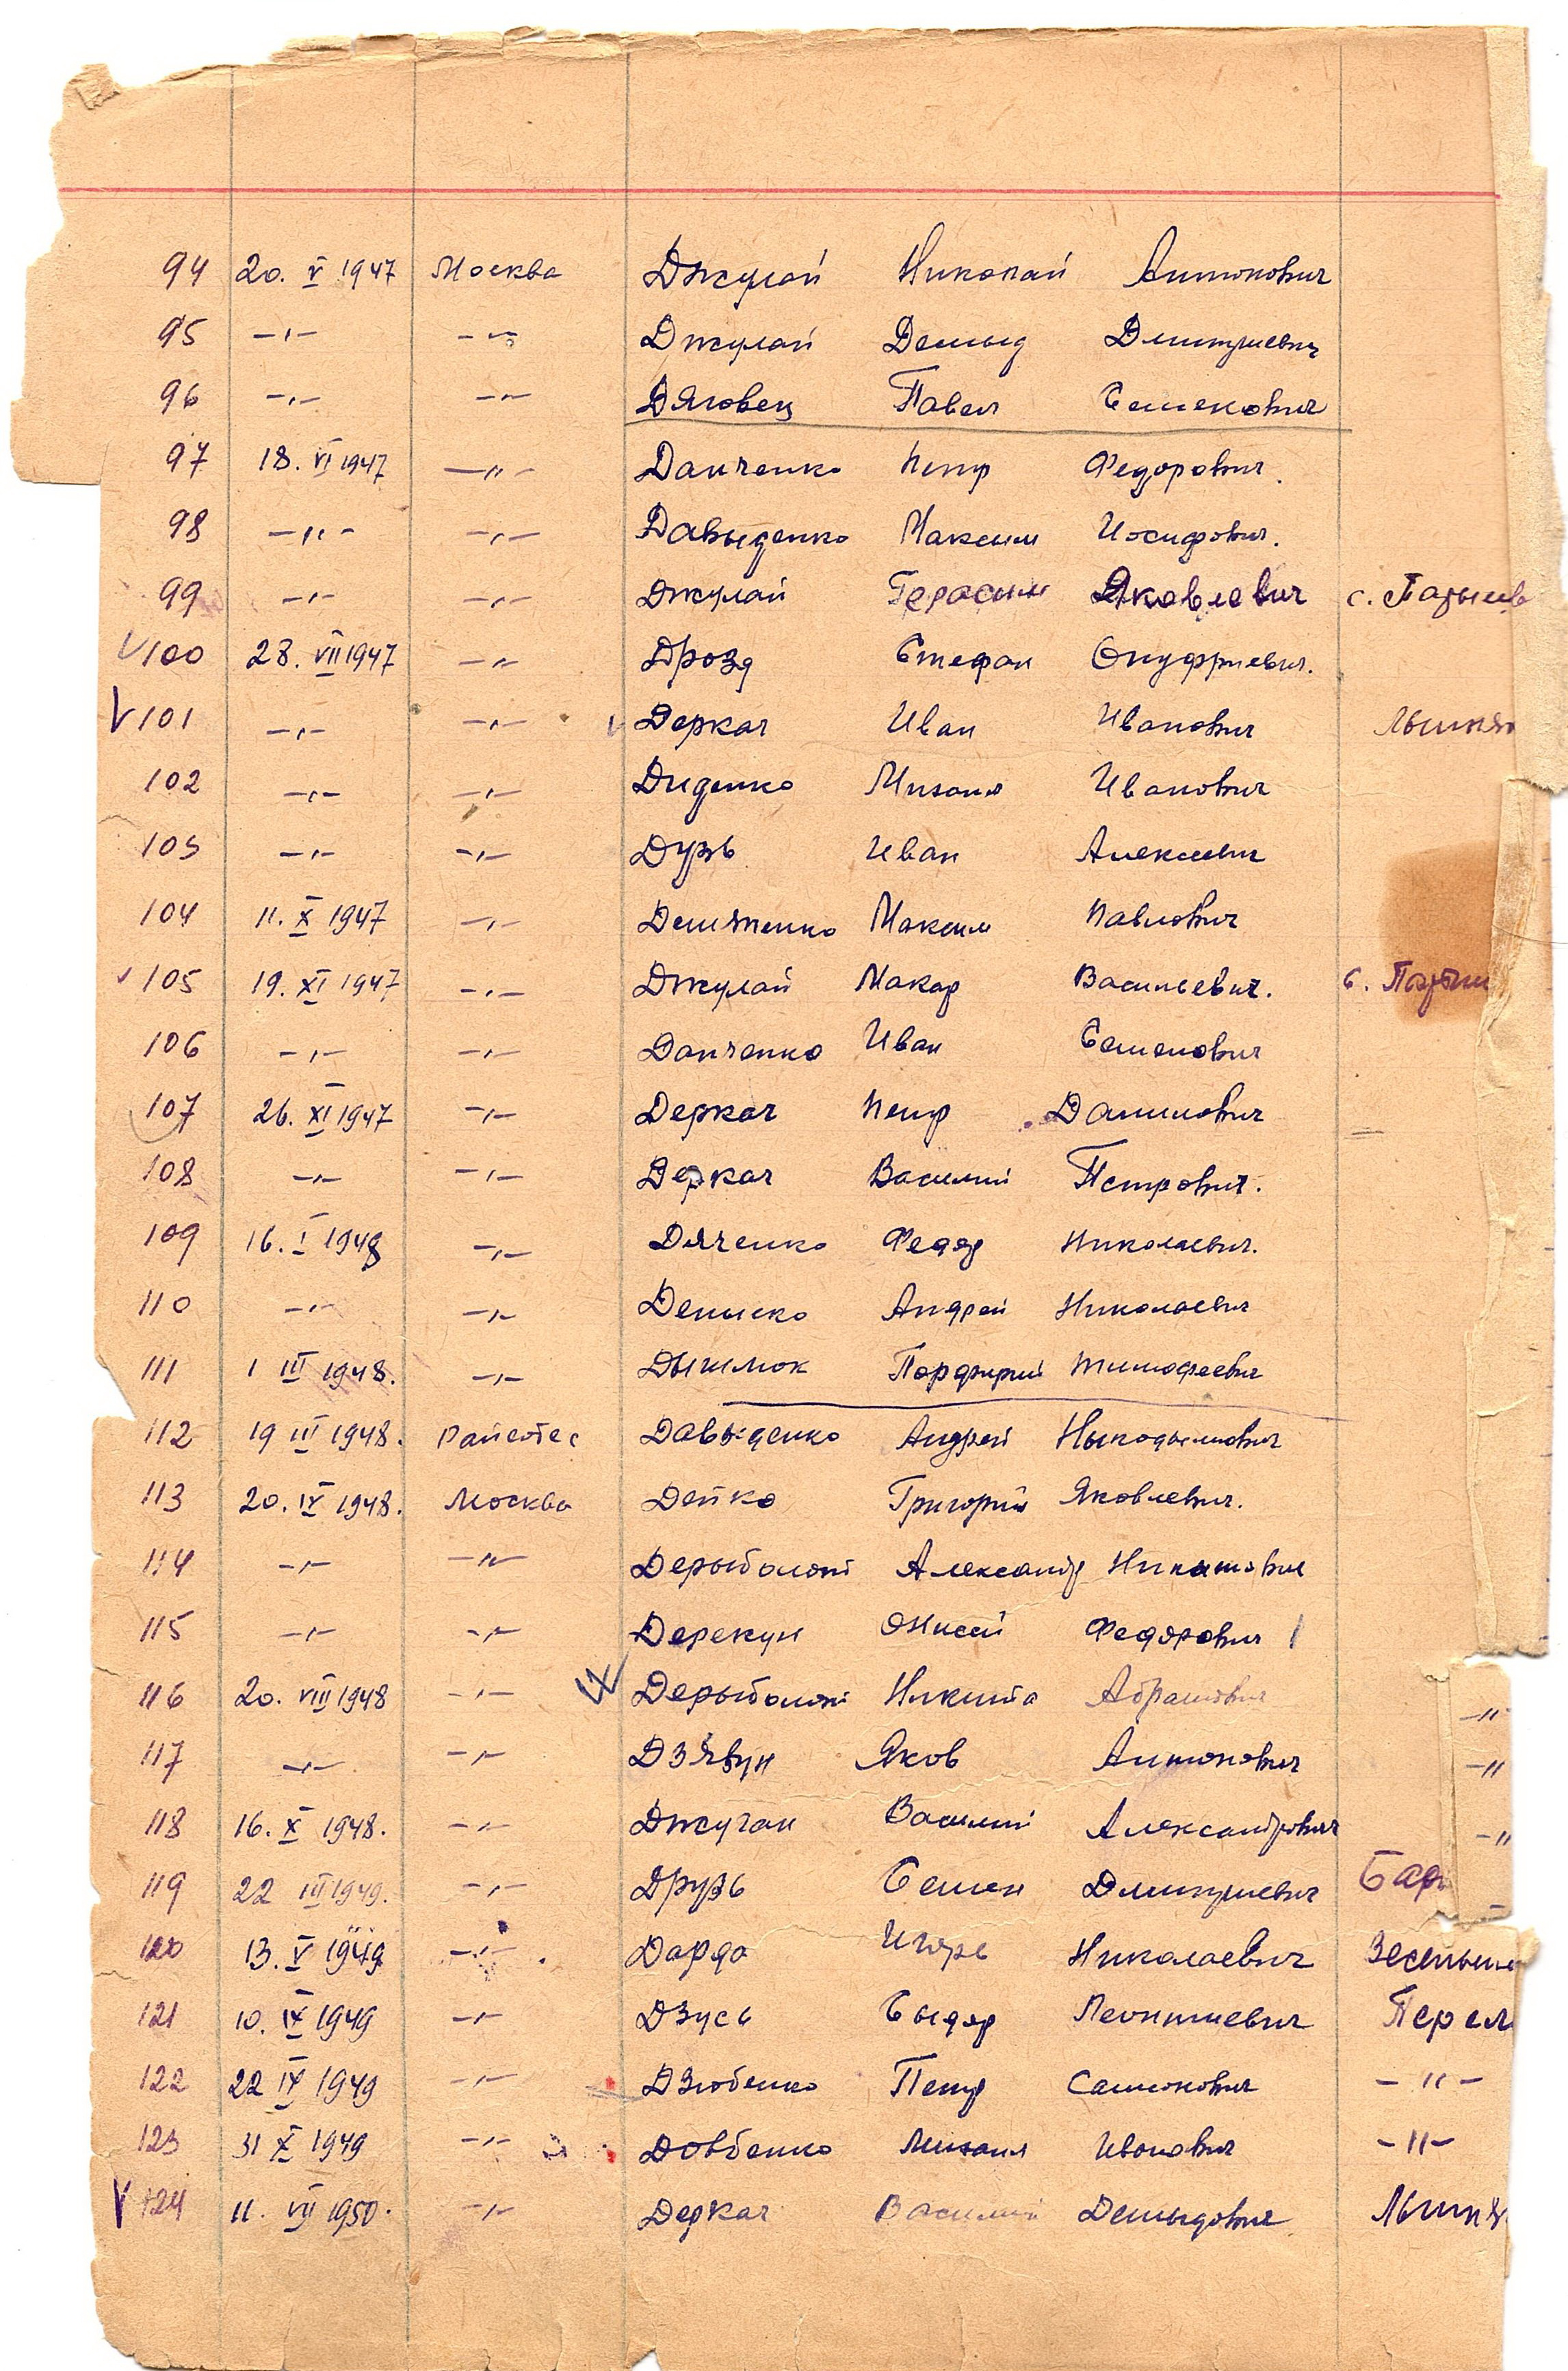 94 20. V 1947 Москва Джулай Николай Антонович
95 -"- -"- Джулай Демыд Дмитриевич
96 -"- -"- Дяговец Павел Семенович
97 18. VI 1947 -"- Данченко Петр Федорович.
98 -"- -"- Давыденко Максим Иосифович.
99 -"- -"- Джулай Герасим Яковлевич с.
V 100 28. VII 1947 -"- Дрозд Стефан Онуфриевич.
V 101 -"- -"- V Деркач Иван Иванович
102 -"- -"- Диденко Михаил Иванович
103 -"- -"- Дузь Иван Алексеевич
104 11. X 1947 -"- Демяненко Максим Павлович
V 105 19. XI 1947 -"- Джулай Макар Васильевич. с.
106 -"- -"- Данченко Иван Семенович
107 26. XI 1947 -"- Деркач Петр Данилович
108 -"- -"- Деркач Василий Петрович.
109 16. I 1948 -"- Дяченко Федор Николаевич.
110 -"- -"- Деныско Андрей Николаевич
111 1 III 1948. -"- Порфирий Тимофеевич
112 19 III 1948. Давыденко Андрей Ныкодымович
113 20. IV 1948. Москва Дейко Григорий Яковлевич.
114 -"- -"- Дерыболот Александр Никитович
115 -"- -"- Дерекун Онисей Федорович
116 20. VIII 1948 -"- Дерыболот Никита Абрамович -"-
117 -"- -"- Дзявун Яков Антонович -"-
118 16. X 1948. -"- Джуган Василий Александрович -"
119 22 III 1949. -"- Друзь Семен Дмитриевич Бар
120 13. V 1949 -"- Дарда Игорь Николаевич
121 10. IX 1949 -"- Дзусь Сыдор Леонтиевич Перел
122 22 IX 1949 -"- Дзюбенко Петр Самсонович -"-
123 31 X 1949 -"- Довбенко Михаил Иванович -"-
V 124 11. VII 1950. -"- Деркач Василий Демыдович